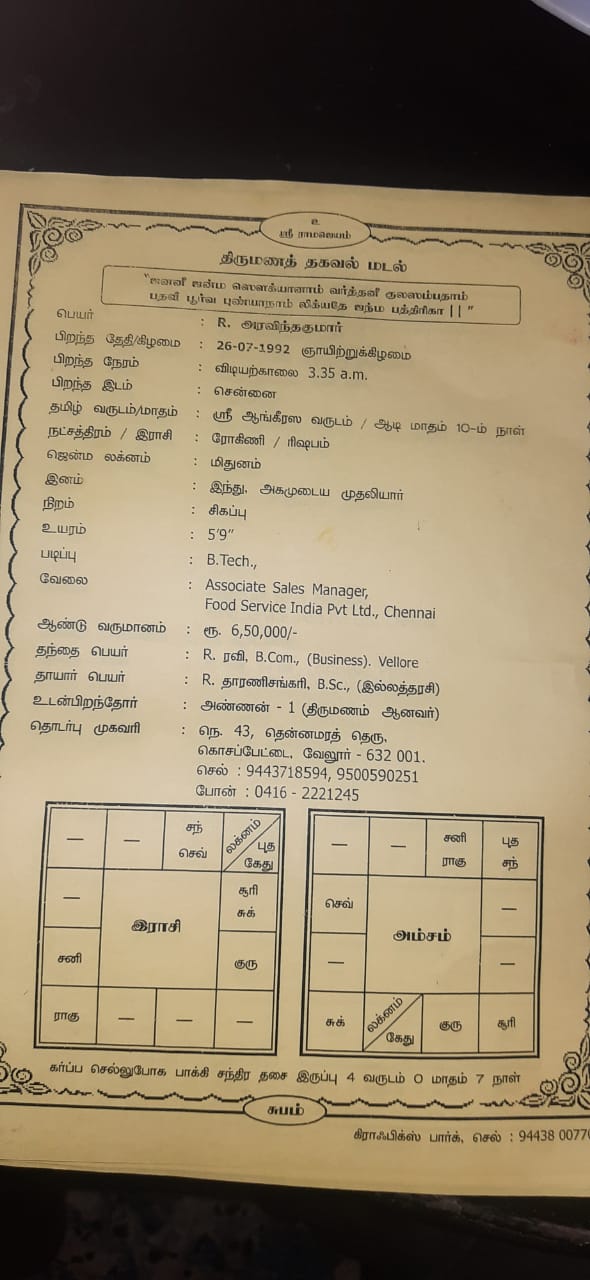 உ
ஸ்ரீ ராமஜெயம்
திருமணத் தகவல் மடல்
"ஜனனீ ஜன்ம ஸௌக்யானாம் வர்த்தனீ குலஸம்பதாம்
பதவீ பூர்வ புண்யாநாம் லிக்யதே ஜந்ம பத்திரிகா || "
பெயர் : R. அரவிந்தகுமார்
பிறந்த தேதி/கிழமை : 26-07-1992 ஞாயிற்றுக்கிழமை
பிறந்த நேரம் : விடியற்காலை 3.35 a.m.
பிறந்த இடம் : சென்னை
தமிழ் வருடம்/மாதம் : ஸ்ரீ ஆங்கீரஸ வருடம் / ஆடி மாதம் 10-ம் நாள்
நட்சத்திரம் / இராசி : ரோகிணி / ரிஷபம்
ஜென்ம லக்னம் : மிதுனம்
இனம் : இந்து, அகமுடைய முதலியார்
நிறம் : சிகப்பு
உயரம் : 5'9"
படிப்பு : B.Tech.,
வேலை : Associate Sales Manager,
Food Service India Pvt Ltd., Chennai
ஆண்டு வருமானம் : ரூ. 6,50,000/-
தந்தை பெயர் : R. ரவி, B.Com., (Business). Vellore
தாயார் பெயர் : R. தாரணிசங்கரி, B.Sc., (இல்லத்தரசி)
உடன்பிறந்தோர் : அண்ணன் - 1 (திருமணம் ஆனவர்)
தொடர்பு முகவரி : நெ. 43, தென்னமரத் தெரு,
கொசப்பேட்டை, வேலூர் - 632 001.
செல் : 9443718594, 9500590251
போன் : 0416 - 2221245
— — சந் செவ் லக்னம் புத கேது
— சூரி சுக்
இராசி
சனி குரு
ராகு — — —
— — சனி ராகு புத சந்
செவ் —
அம்சம்
— —
சுக் லக்னம் கேது குரு சூரி
கர்ப்ப செல்லுபோக பாக்கி சந்திர தசை இருப்பு 4 வருடம் 0 மாதம் 7 நாள்
சுபம்
கிராஃபிக்ஸ் பார்க், செல் : 94438 0077